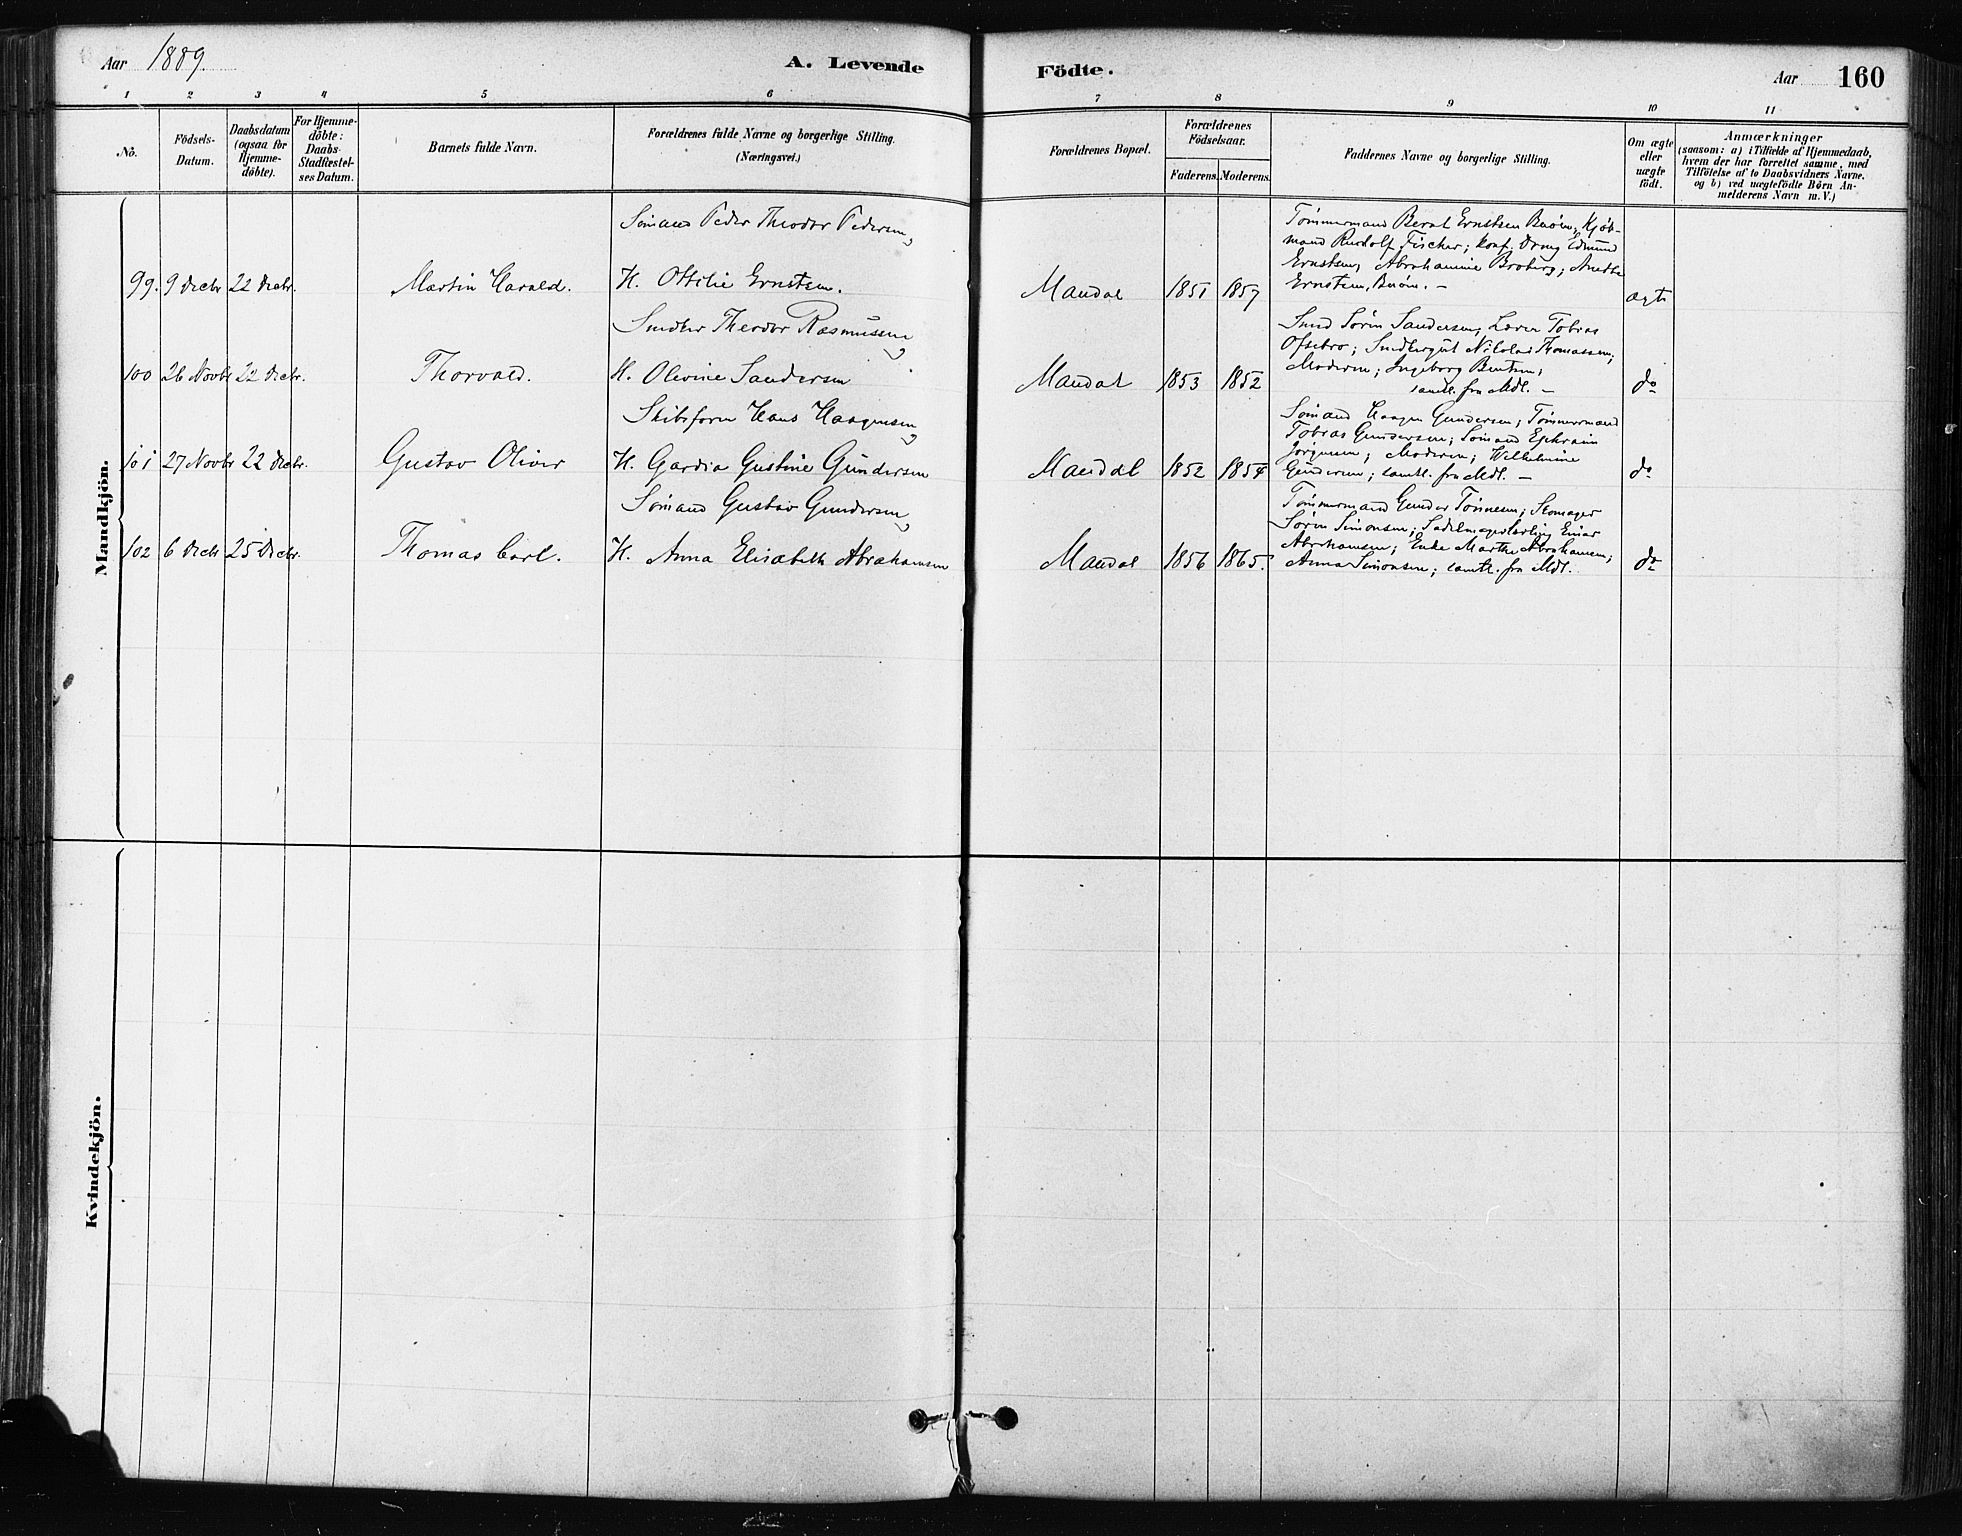 Aar 1889.
A. Levende
Födte.
Aar 160
1 2 3 4 5 6 7 8 9 10 11
No.
Födsels-
Datum.
Daabsdatum
(ogsaa for
Hjemme-
döbte).
For Hjemme-
döbte:
Daabs-
Stadfæstel-
ses Datum.
Barnets fulde Navn.
Forældrenes fulde Navne og borgerlige Stilling.
(Næringsvei.)
Forældrenes Bopæl.
Forældrenes
Födselsaar.
Faderens. Moderens.
Faddernes Navne og borgerlige Stilling.
Om ægte
eller
uægte
födt.
Anmærkninger
(saasom: a) i Tilfælde af Hjemmedaab,
hvem der har forrettet samme, med
Tilföielse af to Daabsvidners Navne,
og b) ved uægtefödte Börn An-
melderens Navn m.V.)
Mandkjön.
Sömand Peder Theodor Pedersen,
99. 9 Decbr 22 Decbr. Martin Harald. H. Ottilie Ernstsen. Mandal 1851 1857
Tömmermand Bernt Ernstsen Buöen; Kjöb-
mand Rudolf Fischer; konf. Dreng Edmund
Ernstsen, Abrahamine Broberg;
Ernstsen, Buöen. –
ægte
Smed Theodor Rasmussen,
100 26 Novbr 22 Decbr. Thorvald. H. Olevine Sandersen Mandal 1853 1852
Smed Sörin Sandersen; Lærer Tobias
Ofsebro; Nikolai Thomassen;
Moderen; Ingeborg Bentsen;
samtl. fra Mdl. –
do
Skibsförer Hans Haagensen,
101 27 Novbr 22 Decbr. Gustav Oliver H. Gardia Gustine Gundersen Mandal 1852 1854
Sömand Haagen Gundersen; Tömmermand
Tobias Gundersen; Sömand Ephraim
Jörgensen; Moderen; Wilhelmine
Gundersen; samtl. fra Mdl. –
do
Sömand Gustav Gundersen,
102 6 Decbr 25 Decbr. Thomas Carl. H. Anna Elisabeth Abrahamsen Mandal 1856 1865.
Tömmermand Gunder Tönnesen; Skomager
Sörin Simonsen; Sadelmagerlærling Einar
Abrahamsen; Enke Marthe Abrahamsen;
Anna Simonsen; samtl. fra Mdl.
do
Kvindekjön.